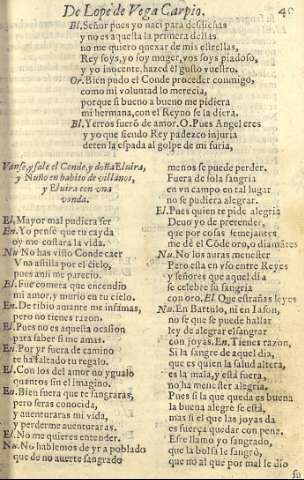 De Lope de Vega Carpio. 40
Bl. Señor pues yo naci para desdichas
y no es aquesta la primera dellas
no me quiero quexar de mis estrellas,
Rey soys, yo soy muger, vos soys piadoso,
y yo inocente, hazed el gusto vuestro.
Or. Bien pudo el Conde proceder conmigo,
como mi voluntad lo merecia,
porque si bueno a bueno me pidiera
mi hermana, con el Reyno se la diera.
Bl. Yerros fuerõ de amor. O. Pues Angel eres
y yo que siendo Rey padezco injuria
deten la espada al golpe de mi furia,
Vanse, y sale el Conde, y doña Elvira,
y Nuño en habito de villanos,
y Elvira con una
vanda.
El. Mayor mal pudiera ser
En. Yo pensé que tu cayda
oy me costara la vida.
Nu. No has visto Conde caer
Vna astilla por el cielo,
pues ansi me parecio.
El. Fue cometa que encendio
mi amor, y murio en tu cielo.
En. De tibio amante me infamas,
pero no tienes razon.
El. Pues no es aquesta ocasion
para saber si me amas.
En. Por yr fuera de camino
te ha faltado tu regalo.
El. Con los del amor no ygualo
quantos sin el imagino.
En. Bien fuera que te sangraras,
pero seras conocida,
y auenturaras mi vida,
y perderme auenturaras.
El. No me quieres entender.
Nu. No hablemos de yr a poblado
que de no auerte sangrado
menos se puede perder.
Fuera de sola sangria
en vn campo en tal lugar
no se pudiera alegrar.
El. Pues quien te pide alegria
Deuo yo de pretender,
que por cosas semejantes
me dé el Cõde oro, o diamãtes
Nu. No los auras menester
Pero esta en vso entre Reyes
y señores que aquel dia
se celebre su sangria
con oro. El. Que estrañas leyes
Nu. En Bartulo, ni en Iason,
no se que se puede hallar
ley de alegrar el sangrar
con joyas. En. Tienes razon,
Si la sangre de aquel dia,
que es quien la salud altera,
es la mala, y está fuera,
no ha menester alegria.
Pues si la que queda es buena
la buena alegre se está,
mas si el que las joyas da
es fuerça quedar con pena.
Esse llamo yo sangrado,
que la bolsa le sangrò,
que no al que por mal le dio
su